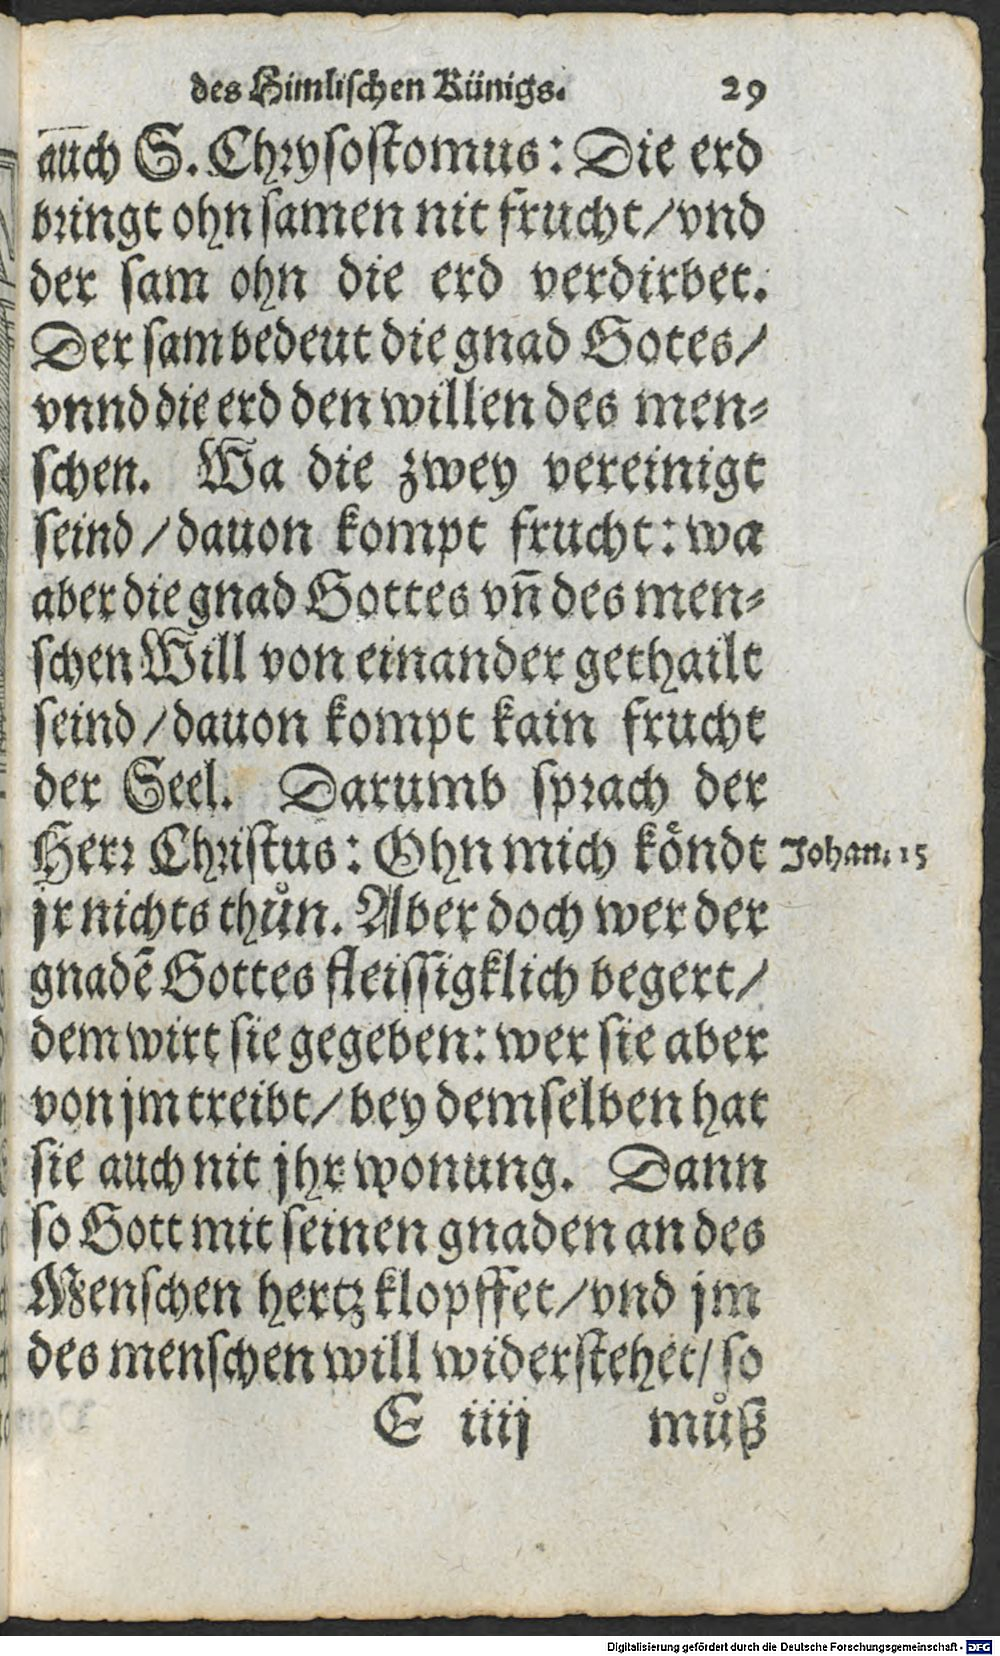 des Himlischen Künigs. 29
auch S. Chrysostomus: Die erd
bringt ohn samen nit frucht/vnd
der sam ohn die erd verdirbet.
Der sam bedeut die gnad Gotes/
vnnd die erd den willen des men⸗
schen. Wa die zwey vereinigt
seind/dauon kompt frucht: wa
aber die gnad Gottes vñ des men⸗
schen Will von einander gethailt
seind/dauon kompt kain frucht
der Seel. Darumb sprach der
Herr Christus: Ohn mich koͤndt
jr nichts thůn. Aber doch wer der
gnadē Gottes fleissigklich begert/
dem wirt sie gegeben: wer sie aber
von jm treibt/bey demselben hat
sie auch nit jhr wonung. Dann
so Gott mit seinen gnaden an des
Menschen hertz klopffet/vnd jm
des menschen will widerstehet/so
E iiij můß
Johan. 15
Digitalisierung gefördert durch die Deutsche Forschungsgemeinschaft - DFG